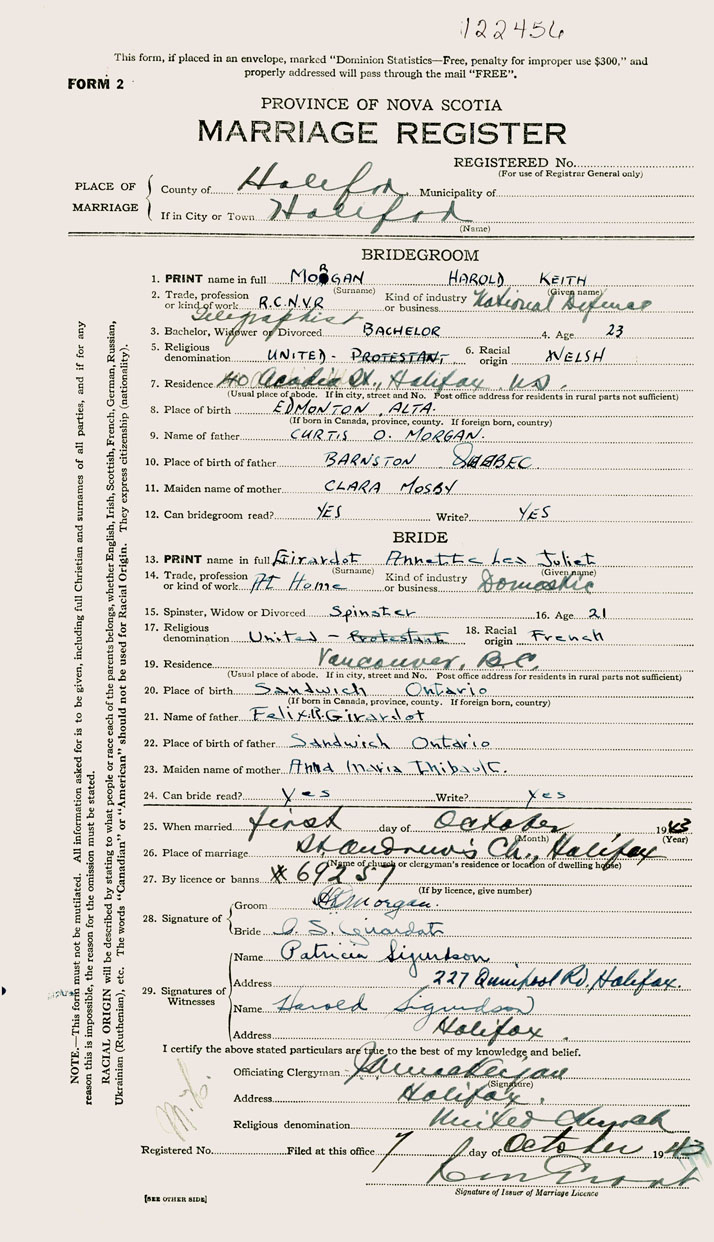 122456
This form, if placed in an envelope, marked "Dominion Statistics—Free, penalty for improper use $300," and
properly addressed will pass through the mail "FREE".
FORM 2
PROVINCE OF NOVA SCOTIA
MARRIAGE REGISTER
REGISTERED No.
(For use of Registrar General only)
PLACE OF MARRIAGE
County of Halifax Municipality of
If in City or Town Halifax
(Name)
BRIDEGROOM
1. PRINT name in full MORGAN HAROLD KEITH
(Surname) (Given name)
2. Trade, profession or kind of work R.C.N.V.R Telegraphist Kind of industry or business National Defense
3. Bachelor, Widower or Divorced BACHELOR 4. Age 23
5. Religious denomination UNITED - PROTESTANT 6. Racial origin WELSH
7. Residence 40 Acadia St., Halifax N.S.
(Usual place of abode. If in city, street and No. Post office address for residents in rural parts not sufficient)
8. Place of birth EDMONTON, ALTA.
(If born in Canada, province, county. If foreign born, country)
9. Name of father CURTIS O. MORGAN.
10. Place of birth of father BARNSTON QUEBEC
11. Maiden name of mother CLARA MOSBY
12. Can bridegroom read? YES Write? YES
BRIDE
13. PRINT name in full Girardot Annette Lea Juliet
(Surname) (Given name)
14. Trade, profession or kind of work At Home Kind of industry or business Domestic
15. Spinster, Widow or Divorced Spinster 16. Age 21
17. Religious denomination United - Protestant 18. Racial origin French
19. Residence Vancouver, B.C.
(Usual place of abode. If in city, street and No. Post office address for residents in rural parts not sufficient)
20. Place of birth Sandwich Ontario
(If born in Canada, province, county. If foreign born, country)
21. Name of father Felix R. Girardot
22. Place of birth of father Sandwich Ontario
23. Maiden name of mother Anna Maria Thibault.
24. Can bride read? Yes Write? Yes
25. When married first day of October 1943
(Month) (Year)
26. Place of marriage St Andrew's Ch., Halifax
(Name of church or clergyman's residence or location of dwelling house)
27. By licence or banns # 69257
(If by licence, give number)
28. Signature of
Groom Morgan.
Bride Girardot
29. Signatures of Witnesses
Name Patricia Sigurdson
Address 227 Quinpool Rd. Halifax.
Name Harold Sigurdson
Address Halifax.
I certify the above stated particulars are true to the best of my knowledge and belief.
Officiating Clergyman
(Signature)
Address Halifax.
Religious denomination United Church
Registered No. Filed at this office 7 day of October 1943
Signature of Issuer of Marriage Licence
[SEE OTHER SIDE]
NOTE.—This form must not be mutilated. All information asked for is to be given, including full Christian and surnames of all parties, and if for any
reason this is impossible, the reason for the omission must be stated.
RACIAL ORIGIN will be described by stating to what people or race each of the parents belongs, whether English, Irish, Scottish, French, German, Russian,
Ukrainian (Ruthenian), etc. The words "Canadian" or "American" should not be used for Racial Origin. They express citizenship (nationality).